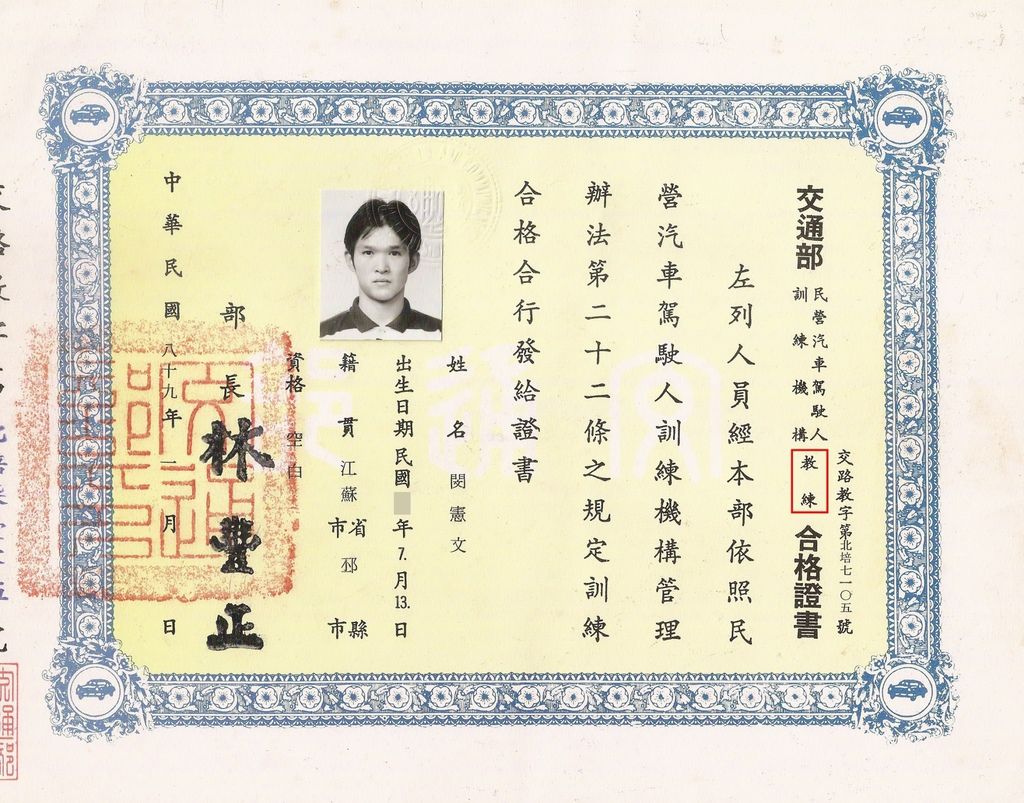 交路教字第北培七一〇五號
交通部民營汽車駕駛人訓練機構教練合格證書
左列人員經本部依照民
營汽車駕駛人訓練機構管理
辦法第二十二條之規定訓練
合格合行發給證書
姓名 閔憲文
出生日期民國 年7.月13.日
籍貫江蘇省市邳縣市
資格 空白
部長 林豐正
中華民國八十九年二月 日